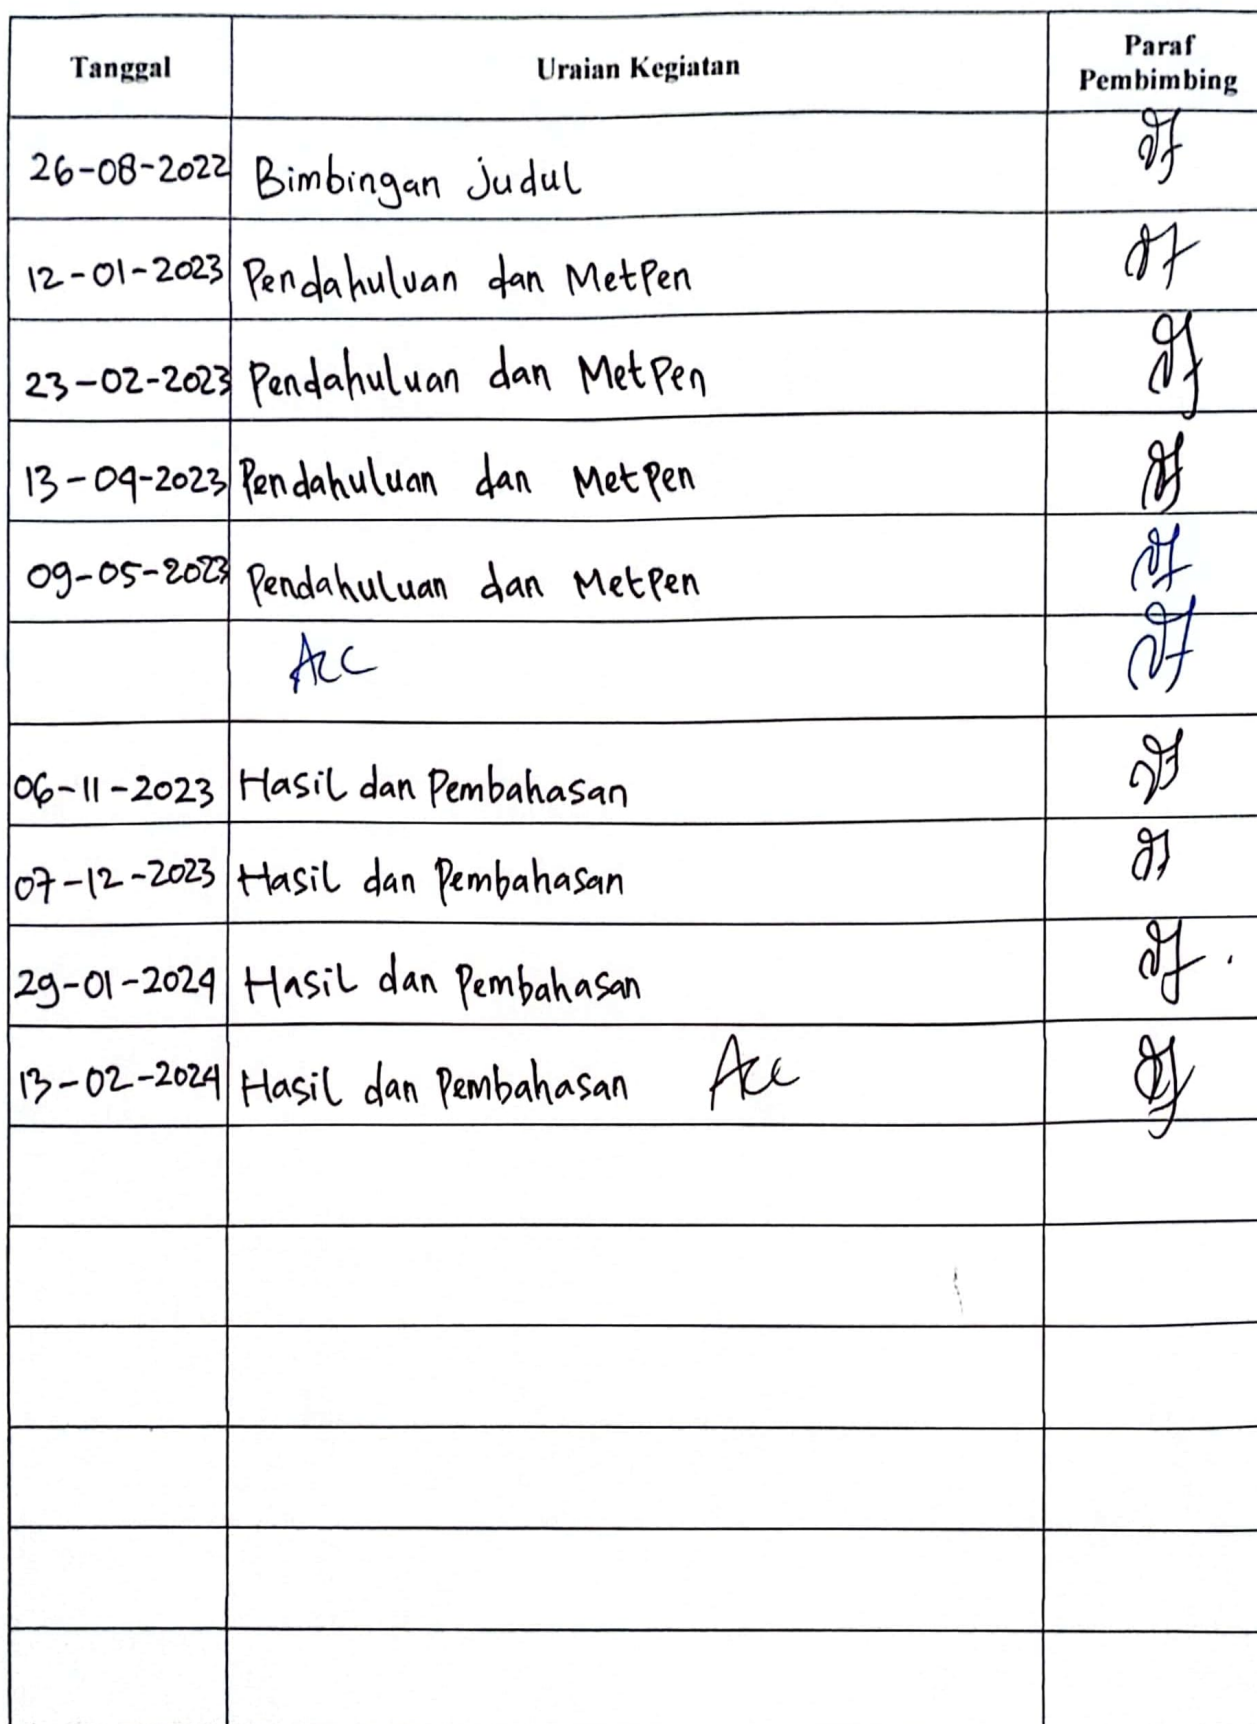 Tanggal Uraian Kegiatan Paraf Pembimbing
26-08-2022 Bimbingan judul
12-01-2023 Pendahuluan dan MetPen
23-02-2023 Pendahuluan dan MetPen
13-04-2023 Pendahuluan dan MetPen
09-05-2023 Pendahuluan dan MetPen
Acc
06-11-2023 Hasil dan Pembahasan
07-12-2023 Hasil dan Pembahasan
29-01-2024 Hasil dan Pembahasan
13-02-2024 Hasil dan Pembahasan Acc